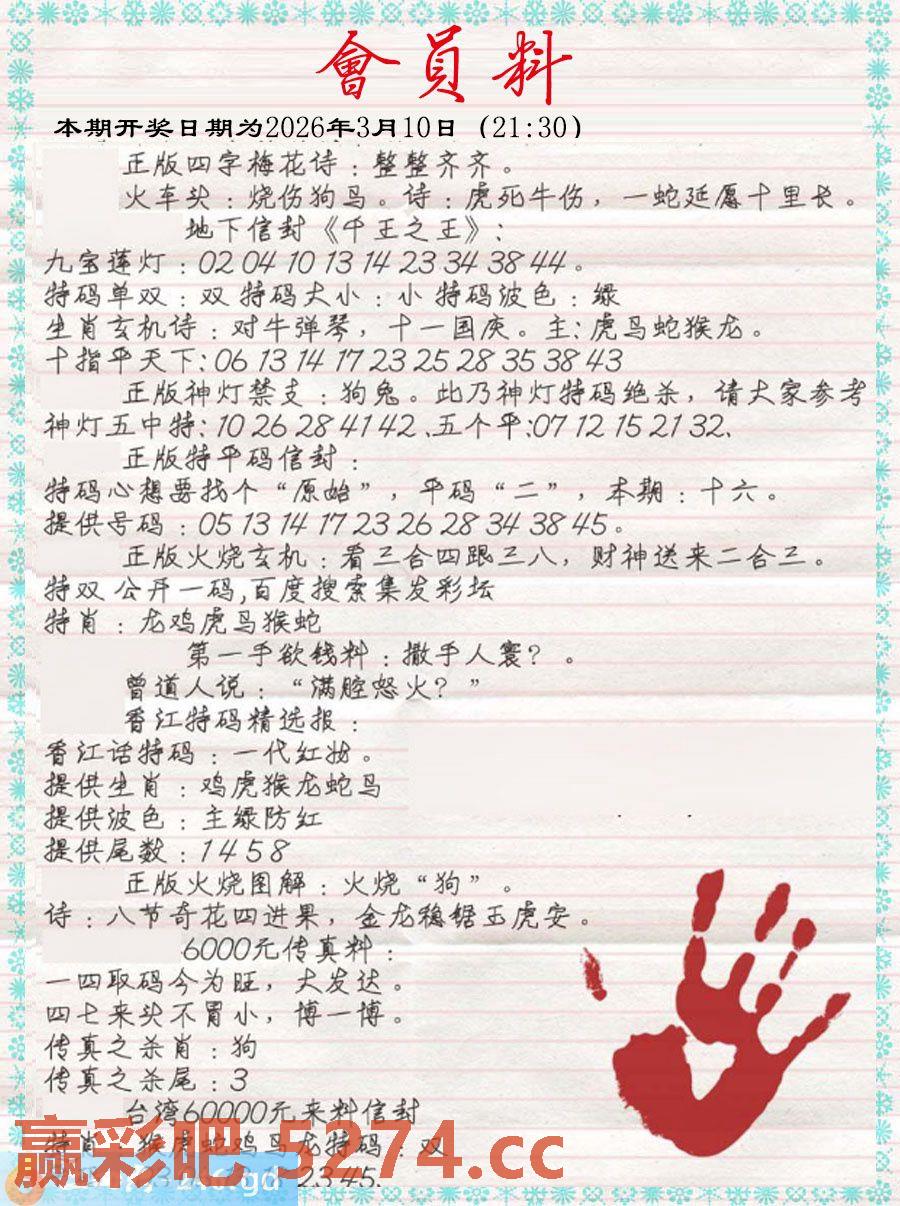 會員料
本期开奖日期为2026年3月10日（21:30）
正版四字梅花诗：整整齐齐。
火车头：烧伤狗马。诗：虎死牛伤，一蛇延愿十里长。
地下信封《千王之王》：
九宝莲灯：02 04 10 13 14 23 34 38 44。
特码单双：双 特码大小：小 特码波色：绿
生肖玄机诗：对牛弹琴，十一国庆。主：虎马蛇猴龙。
十指平天下：06 13 14 17 23 25 28 35 38 43
正版神灯禁支：狗兔。此乃神灯特码绝杀，请大家参考
神灯五中特：10 26 28 41 42、五个平：07 12 15 21 32、
正版特平码信封：
特码心想要找个“原始”，平码“二”，本期：十六。
提供号码：05 13 14 17 23 26 28 34 38 45。
正版火烧玄机：看三合四跟三八，财神送来二合三。
特双公开一码,百度搜索集发彩坛
特肖：龙鸡虎马猴蛇
第一手欲钱料：撒手人寰？。
曾道人说：“满腔怒火？”
香江特码精选报：
香江话特码：一代红妆。
提供生肖：鸡虎猴龙蛇马
提供波色：主绿防红
提供尾数：1 4 5 8
正版火烧图解：火烧“狗”。
诗：八节奇花四进果，金龙稳锯玉虎安。
6000元传真料：
一四取码今为旺，大发达。
四七来头不冒小，博一博。
传真之杀肖：狗
传真之杀尾：3
台湾60000元来料信封
特肖：猴虎蛇鸡马龙特码：双
赢彩吧.5274.cc
23 45.